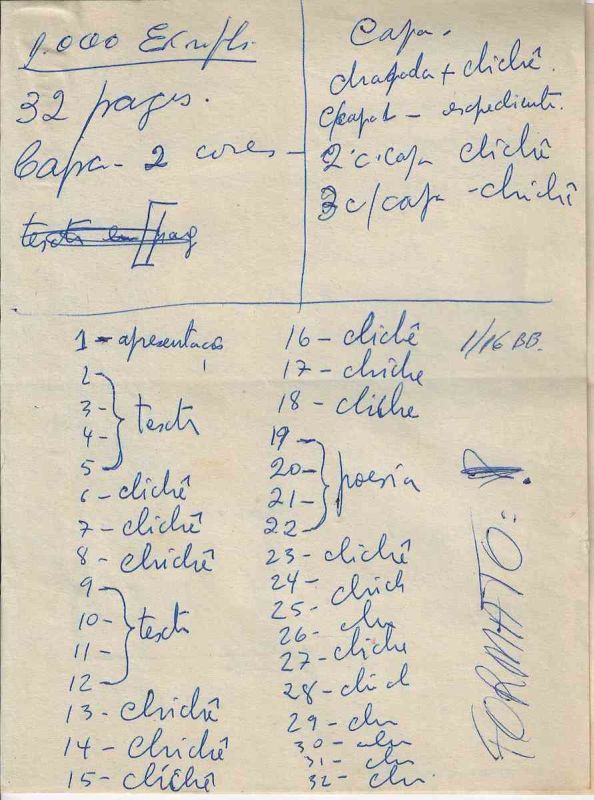 1.000 Exempls.
32 pages.
Capa - 2 cores -
Capa -
chapada + clichê.
c/capa 1 - expediente.
2ª c. capa clichê
3 c/capa - clichê
1 - apresentação
2 -
3 -
4 -
5
texto
6 - clichê
7 - clichê
8 - clichê
9
10 -
11 -
12 -
texto
13 - clichê
14 - clichê
15 - clichê
16 - clichê
17 - cliche
18 - cliche
19 -
20 -
21 -
22 -
poesia
23 - clichê
24 - clich
25 - cli
26 - cli
27 - cliche
28 - clich
29 - cli
30 - cli
31 - cli
32 - cli
1/16 BB.
FORMATO: